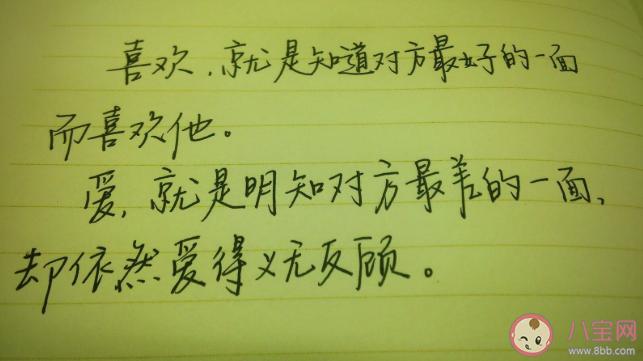 喜欢，就是知道对方最好的一面
而喜欢他。
爱，就是明知对方最差的一面，
却依然爱得义无反顾。
八宝网
www.8bb.com